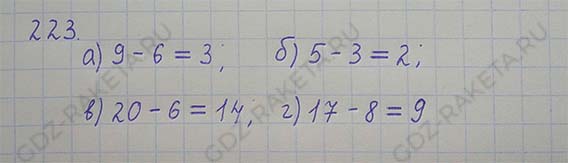 223.
а) 9 - 6 = 3; б) 5 - 3 = 2;
в) 20 - 6 = 14; г) 17 - 8 = 9
GDZ-RAKETA.RU
GDZ-RAKETA.RU
GDZ-RAKETA.RU